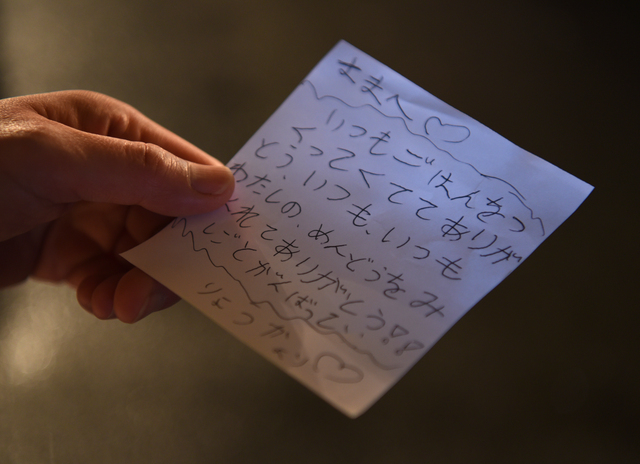 ままへ♡
いつもごはんをつ
くってくててありが
とう、いつも、いつも
わたしの、めんどうをみ
くれてありがとう!!
しごとがんばって、
より♡